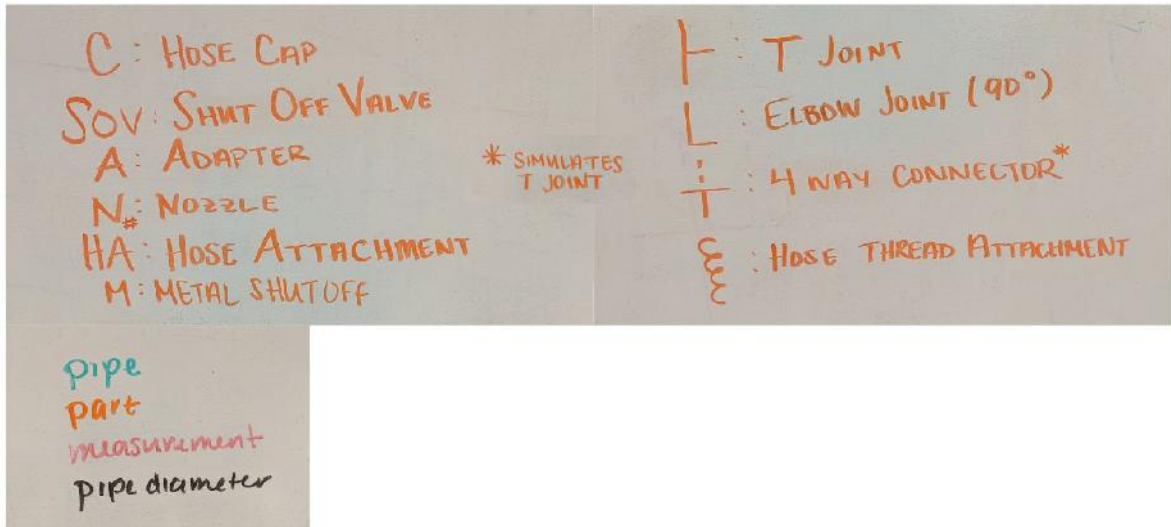 C: HOSE CAP
SOV: SHUT OFF VALVE
A: ADAPTER
N#: NOZZLE
HA: HOSE ATTACHMENT
M: METAL SHUTOFF
* SIMULATES
T JOINT
: T JOINT
: ELBOW JOINT (90°)
: 4 WAY CONNECTOR*
: HOSE THREAD ATTACHMENT
pipe
part
measurement
pipe diameter